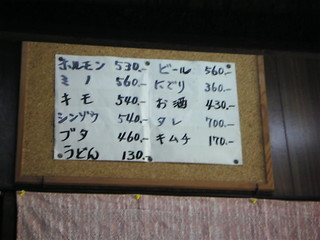 ホルモン 530.-
ミノ 560.-
キモ 540.-
シンゾウ 540.-
ブタ 460.-
うどん 130.-
ビール 560.-
にごり 360.-
お酒 430.-
タレ 700.-
キムチ 170.-